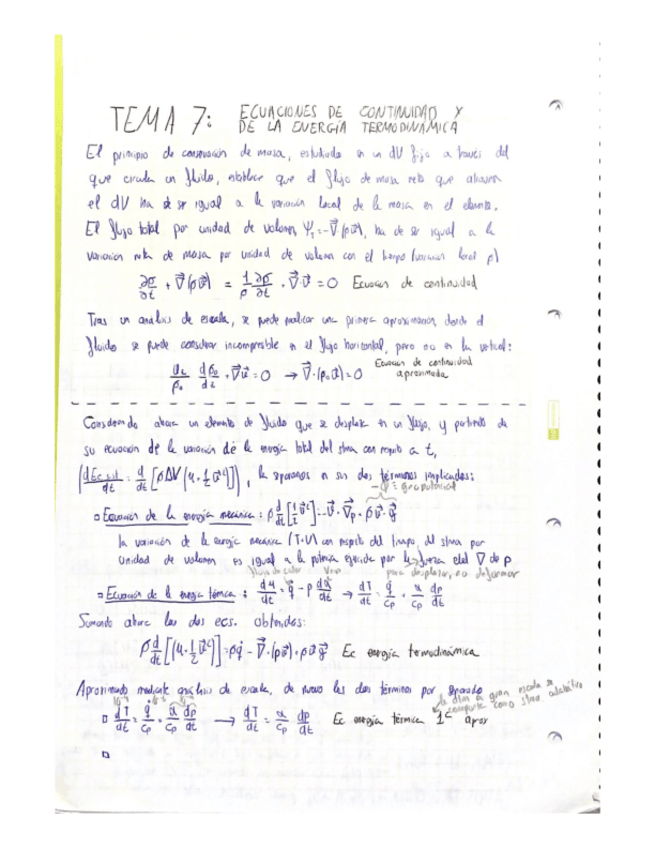 TEMA 7: ECUACIONES DE CONTINUIDAD Y
DE LA ENERGÍA TERMODINÁMICA
El principio de conservación de masa, estudiado en un dV fijo a través del
que circula un fluido, establece que el flujo de masa neto que atraviesa
el dV ha de ser igual a la variación local de la masa en el elemento.
El flujo total por unidad de volumen, Ψ = -∇⃗(ρu⃗), ha de ser igual a la
variación neta de masa por unidad de volumen con el tiempo (variación local ρ)
∂ρ/∂t + ∇⃗(ρu⃗) = 1/ρ ∂ρ/∂t + ∇⃗·u⃗ = 0 Ecuación de continuidad
Tras un análisis de escala, se puede realizar una primera aproximación, donde el
fluido se puede considerar incompresible en el flujo horizontal, pero no en la vertical:
dρ₀/dz + ∇⃗u⃗ = 0 → ∇⃗·(ρ₀u⃗) = 0 Ecuación de continuidad
aproximada
Considerando ahora un elemento de fluido que se desplaza en un flujo, y partiendo de
su ecuación de la variación de la energía total del stma con respecto a t,
= d/dt [ρΔV(u + 1/2 u⃗²)], la separamos en sus dos términos implicados:
Ecuación de la energía mecánica: ρ d/dt [1/2 u⃗²] = -u⃗·∇⃗p + ρu⃗·g⃗
la variación de la energía mecánica (T+U) con respecto del tiempo, del stma por
unidad de volumen es igual a la potencia ejercida por la fuerza del ∇ de p
para desplazar, no deformar
Ecuación de la energía térmica: du/dt = q̇ - p dα/dt → dT/dt = q̇/cp + α/cp dp/dt
Sumando ahora las dos ecs. obtenidas:
ρ d/dt [(u + 1/2 u⃗²)] = ρq̇ - ∇⃗·(pu⃗) + ρu⃗·g⃗ Ec energía termodinámica
Aproximando mediante análisis de escala, de nuevo los dos términos por separado
dT/dt = q̇/cp + α/cp dp/dt → dT/dt = α/cp dp/dt Ec energía térmica 1ª aprox
la atm a gran escala se
comporta como stma. adiabático